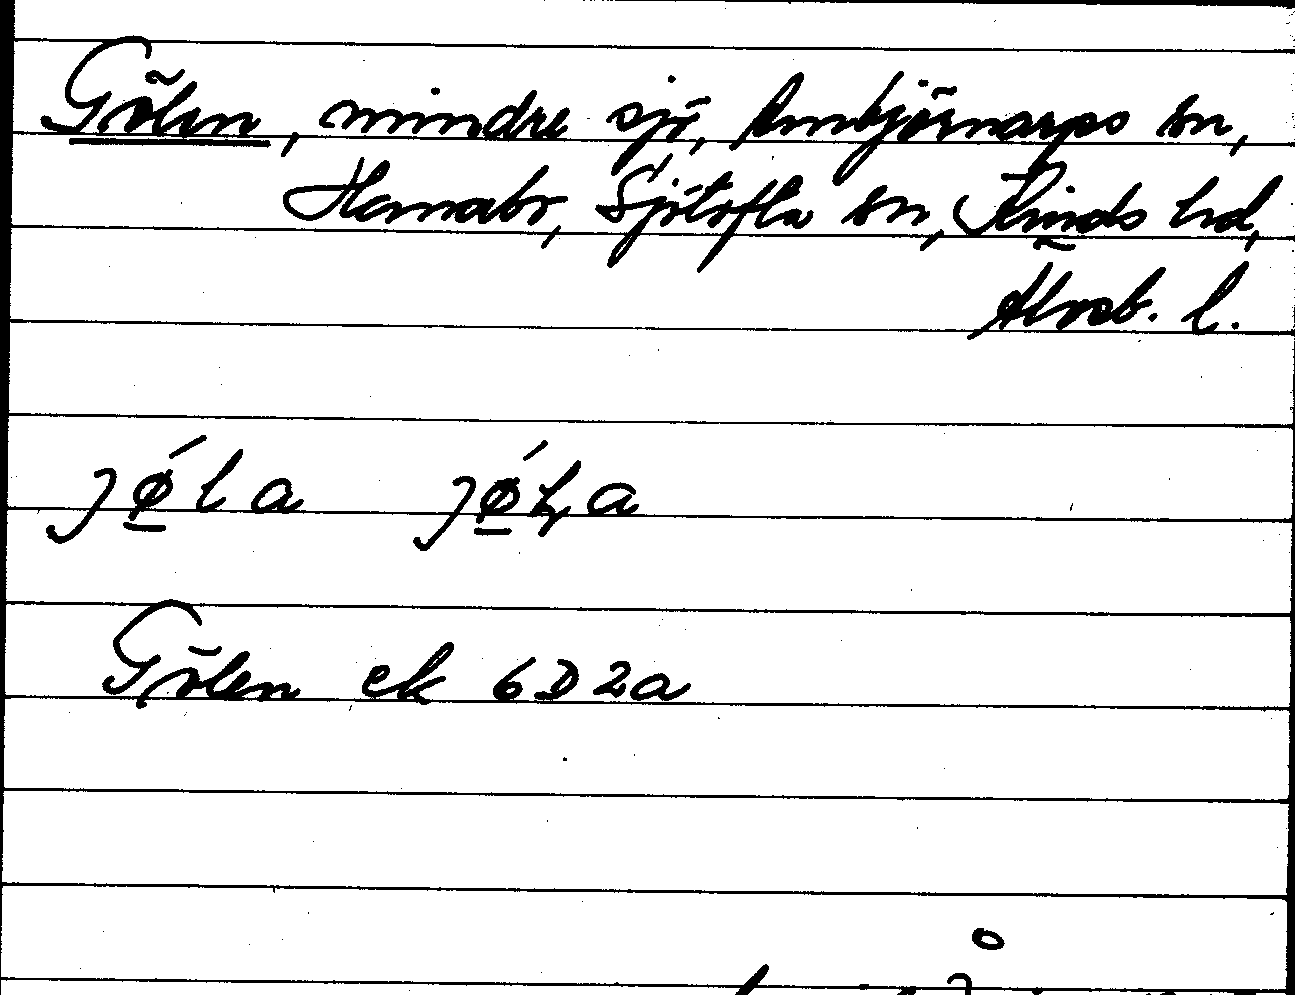 Gölen, mindre sjö, Ambjörnarps sn,
Hemabr, Sjötofta sn, Kinds hd,
Älvsb. l.
jǿ̱la jǿ̱ḷa
Gölen ek 6D2a